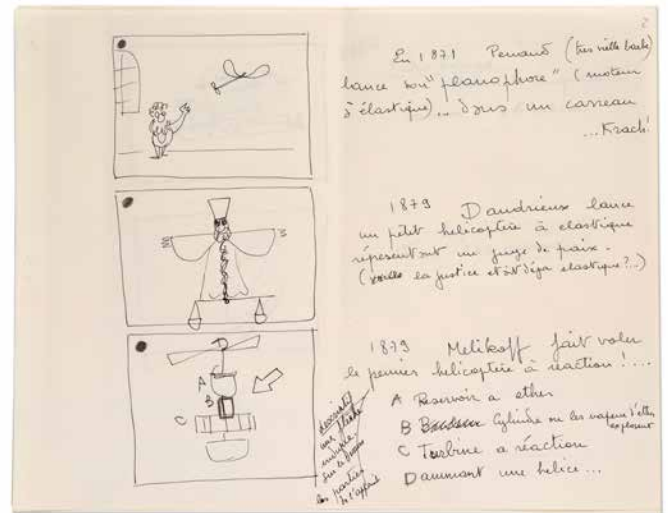 2
En 1871 Penaud (tres vieille barbe)
lance son "planophore" (moteur
à élastique)... dans un carreau
...Krach!
1879 Dandrieux lance
un pétit helicoptère à elastique
répresentant un juge de paix.
(la justice etait déja elastique?..)
1879 Melikoff fait voler
le premier helicoptère à réaction!....
A Reservoir a ether
B Cylindre ou les vapeurs d'ether
explosent
C Turbine a réaction
Dammant une helice...
A
B
C
une flèche
sur le dessin
les parties
de l'appareil